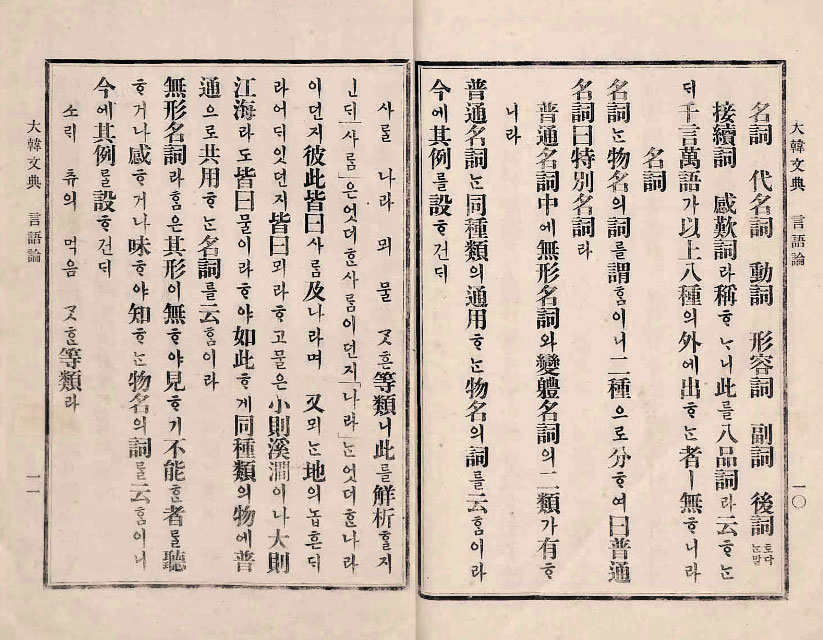 大韓文典 言語論 一〇
名詞 代名詞 動詞 形容詞 副詞 後詞 토다는말
接續詞 感歎詞라稱ᄒᆞᄂᆞ니此를八品詞라云ᄒᆞᄂᆞᆫ
ᄃᆡ千言萬語가以上八種의外에出ᄒᆞᄂᆞᆫ者ㅣ無ᄒᆞ니라
名詞
名詞ᄂᆞᆫ物名의詞를謂ᄒᆞᆷ이니二種으로分ᄒᆞ여曰普通
名詞曰特別名詞라
普通名詞中에無形名詞와變軆名詞의二類가有ᄒᆞ
니라
普通名詞ᄂᆞᆫ同種類의通用ᄒᆞᄂᆞᆫ物名의詞를云ᄒᆞᆷ이라
今에其例를設ᄒᆞ건ᄃᆡ
사ᄅᆞᆷ 나라 뫼 물 ᄯᅩᄒᆞᆫ等類니此를解析ᄒᆞᆯ지
닌ᄃᆡ「사ᄅᆞᆷ」은엇더ᄒᆞᆫ사ᄅᆞᆷ이던지「나라」ᄂᆞᆫ엇더ᄒᆞᆫ나라
이던지彼此皆曰사ᄅᆞᆷ及나라며 又뫼ᄂᆞᆫ地의놉흔ᄃᆡ
라어ᄃᆡ잇던지皆曰뫼라ᄒᆞ고물은小則溪澗이나大則
江海라도皆曰물이라ᄒᆞ야如此ᄒᆞ게同種類의物에普
通으로共用ᄒᆞᄂᆞᆫ名詞를云ᄒᆞᆷ이라
無形名詞라ᄒᆞᆷ은其形이無ᄒᆞ야見ᄒᆞ기不能ᄒᆞᆫ者를聽
ᄒᆞ거나感ᄒᆞ거나味ᄒᆞ야知ᄒᆞᄂᆞᆫ物名의詞를云ᄒᆞᆷ이니
今에其例를設ᄒᆞ건ᄃᆡ
소ᄅᆡ 츄의 먹음 ᄯᅩᄒᆞᆫ等類라
大韓文典 言語論 一一